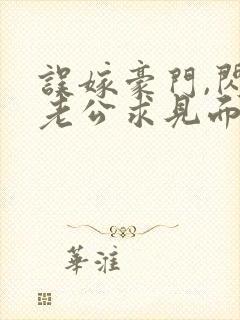 誤嫁豪門,閃
老公求見面
華淮